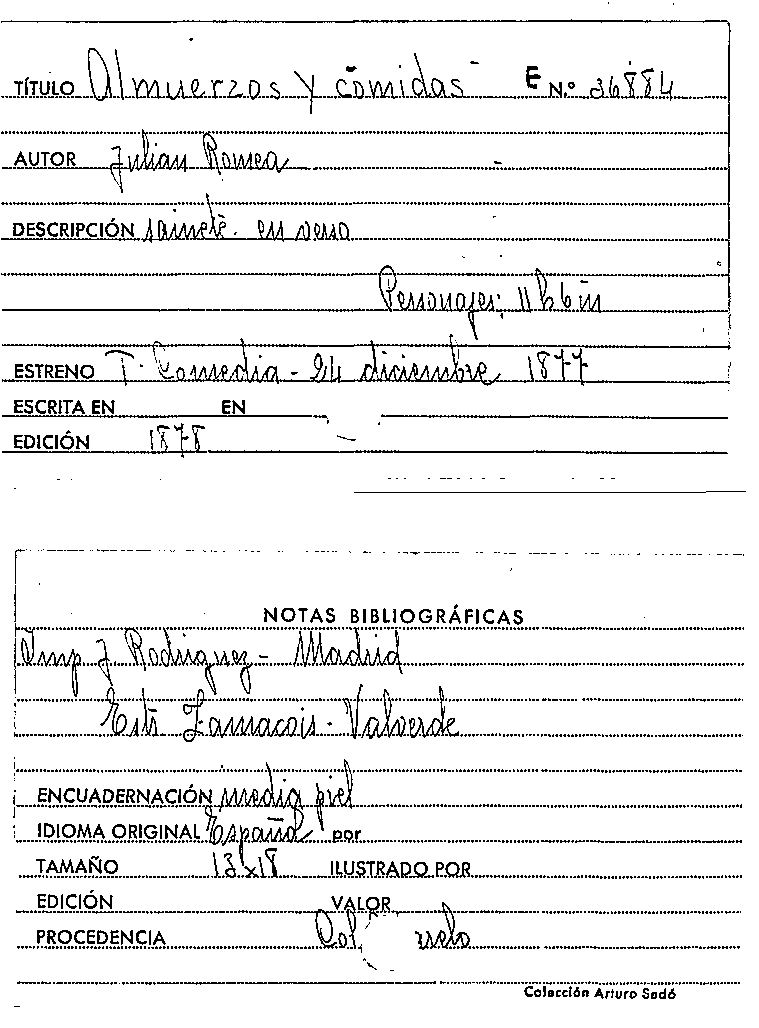 TÍTULO Almuerzos y comidas E N.º 36884
AUTOR Julian Romea
DESCRIPCIÓN sainete en verso
Personajes: 11 h 6 m
ESTRENO T. Comedia - 24 diciembre 1877
ESCRITA EN EN
EDICIÓN 1878
NOTAS BIBLIOGRÁFICAS
Imp J. Rodriguez - Madrid
Estr Zamacois - Valverde
ENCUADERNACIÓN media piel
IDIOMA ORIGINAL Español por
TAMAÑO 13x18 ILUSTRADO POR
EDICIÓN VALOR
PROCEDENCIA Col.
Colección Arturo Sedó